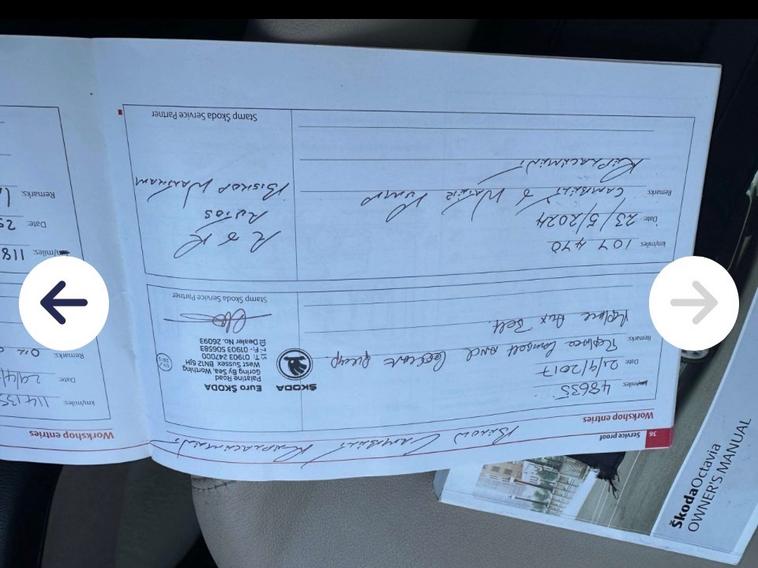 36 Service proof
Below Cambelt Replacements
Workshop entries
km/miles: 48655
Date: 21/9/2017
Remarks: Replace cambelt and coolant pump.
Replace Aux Belt
ŠKODA
Euro ŠKODA
Palatine Road
Goring By Sea, Worthing
West Sussex BN12 6JH
T: 01903 247000
F: 01903 506583
Dealer No. 26093
Stamp Škoda Service Partner
km/miles: 107 470
Date: 23/5/2024
Remarks: CAMBELT & WATER PUMP
REPLACEMENT
R & R
AUTOS
BISHOP WALTHAM
Stamp Škoda Service Partner
Workshop entries
km/miles: 114135
Date: 29/4/
Remarks: OIL
km/miles: 118
Date: 25
Remarks:
ŠkodaOctavia
OWNER'S MANUAL